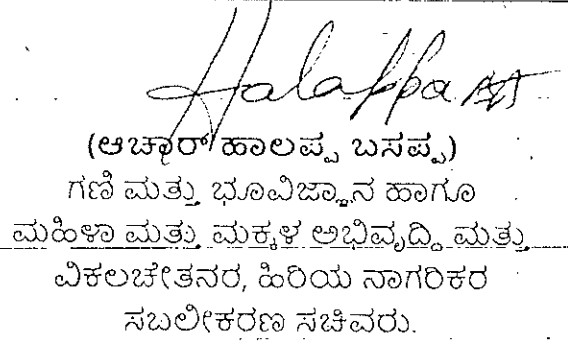 Halappa
(ಆಚಾರ್ ಹಾಲಪ್ಪ ಬಸಪ್ಪ)
ಗಣಿ ಮತ್ತು ಭೂವಿಜ್ಞಾನ ಹಾಗೂ
ಮಹಿಳಾ ಮತ್ತು ಮಕ್ಕಳ ಅಭಿವೃದ್ಧಿ ಮತ್ತು
ವಿಕಲಚೇತನರ, ಹಿರಿಯ ನಾಗರಿಕರ
ಸಬಲೀಕರಣ ಸಚಿವರು.